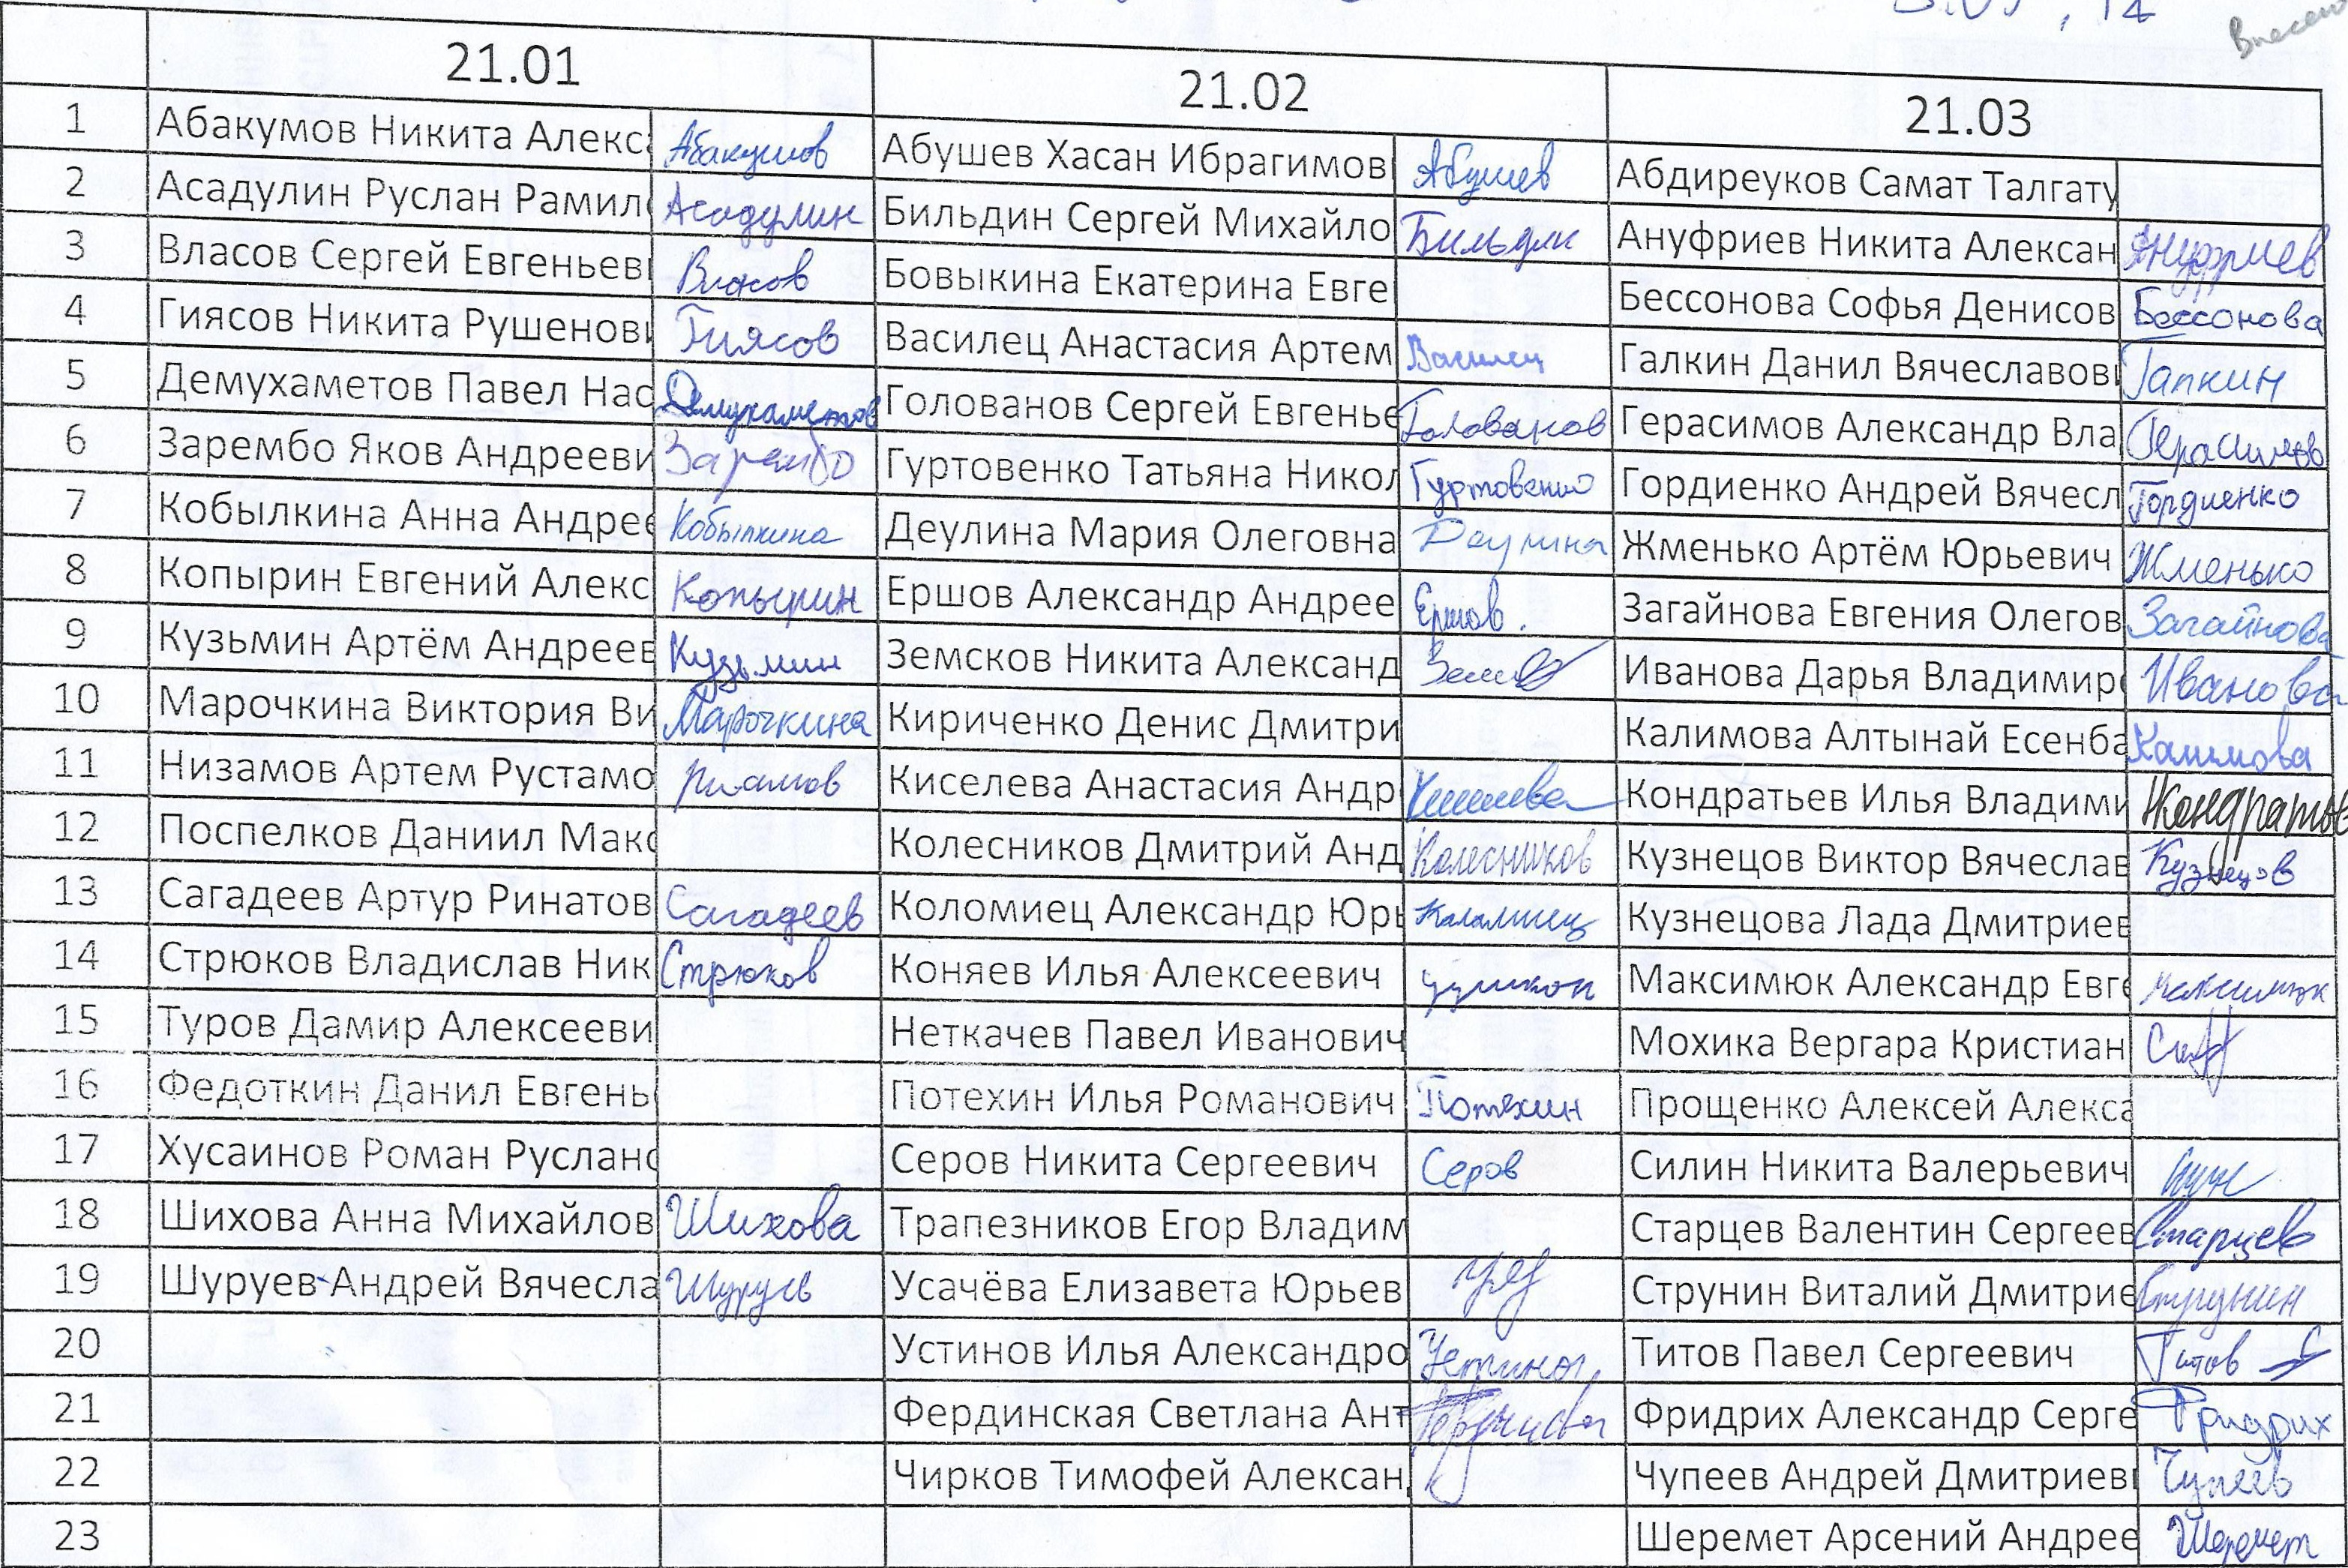 21.01 21.02 21.03
1 Абакумов Никита Алекс Абакумов Абушев Хасан Ибрагимов Абушев Абдиреуков Самат Талгату
2 Асадулин Руслан Рамил Асадулин Бильдин Сергей Михайло Бильдин Ануфриев Никита Алексан Ануфриев
3 Власов Сергей Евгеньев Власов Бовыкина Екатерина Евге Бессонова Софья Денисов Бессонова
4 Гиясов Никита Рушенов Гиясов Василец Анастасия Артем Василец Галкин Данил Вячеславов Галкин
5 Демухаметов Павел Нас Демухаметов Голованов Сергей Евгенье Голованов Герасимов Александр Вла Герасимов
6 Зарембо Яков Андрееви Зарембо Гуртовенко Татьяна Никол Гуртовенко Гордиенко Андрей Вячесл Гордиенко
7 Кобылкина Анна Андрее Кобылкина Деулина Мария Олеговна Деулина Жменько Артём Юрьевич Жменько
8 Копырин Евгений Алекс Копырин Ершов Александр Андрее Ершов. Загайнова Евгения Олегов Загайнова
9 Кузьмин Артём Андреев Кузьмин Земсков Никита Александ Иванова Дарья Владимир Иванова
10 Марочкина Виктория Ви Марочкина Кириченко Денис Дмитри Калимова Алтынай Есенба Калимова
11 Низамов Артем Рустамо Киселева Анастасия Андр Киселева Кондратьев Илья Владими Кондратье
12 Поспелков Даниил Мак Колесников Дмитрий Анд Колесников Кузнецов Виктор Вячеслав Кузнецов
13 Сагадеев Артур Ринатов Сагадеев Коломиец Александр Юрь Коломиец Кузнецова Лада Дмитриев
14 Стрюков Владислав Ник Стрюков Коняев Илья Алексеевич Максимюк Александр Евге Максимюк
15 Туров Дамир Алексееви Неткачев Павел Иванович Мохика Вергара Кристиан
16 Федоткин Данил Евгень Потехин Илья Романович Потехин Прощенко Алексей Алекса
17 Хусаинов Роман Руслан Серов Никита Сергеевич Серов Силин Никита Валерьевич
18 Шихова Анна Михайлов Шихова Трапезников Егор Владим Старцев Валентин Сергеев Старцев
19 Шуруев Андрей Вячесла Шуруев Усачёва Елизавета Юрьев Струнин Виталий Дмитрие Струнин
20 Устинов Илья Александро Устинов Титов Павел Сергеевич Титов
21 Фердинская Светлана Ант Фридрих Александр Серге Фридрих
22 Чирков Тимофей Алексан Чупеев Андрей Дмитриев Чупеев
23 Шеремет Арсений Андрее Шеремет